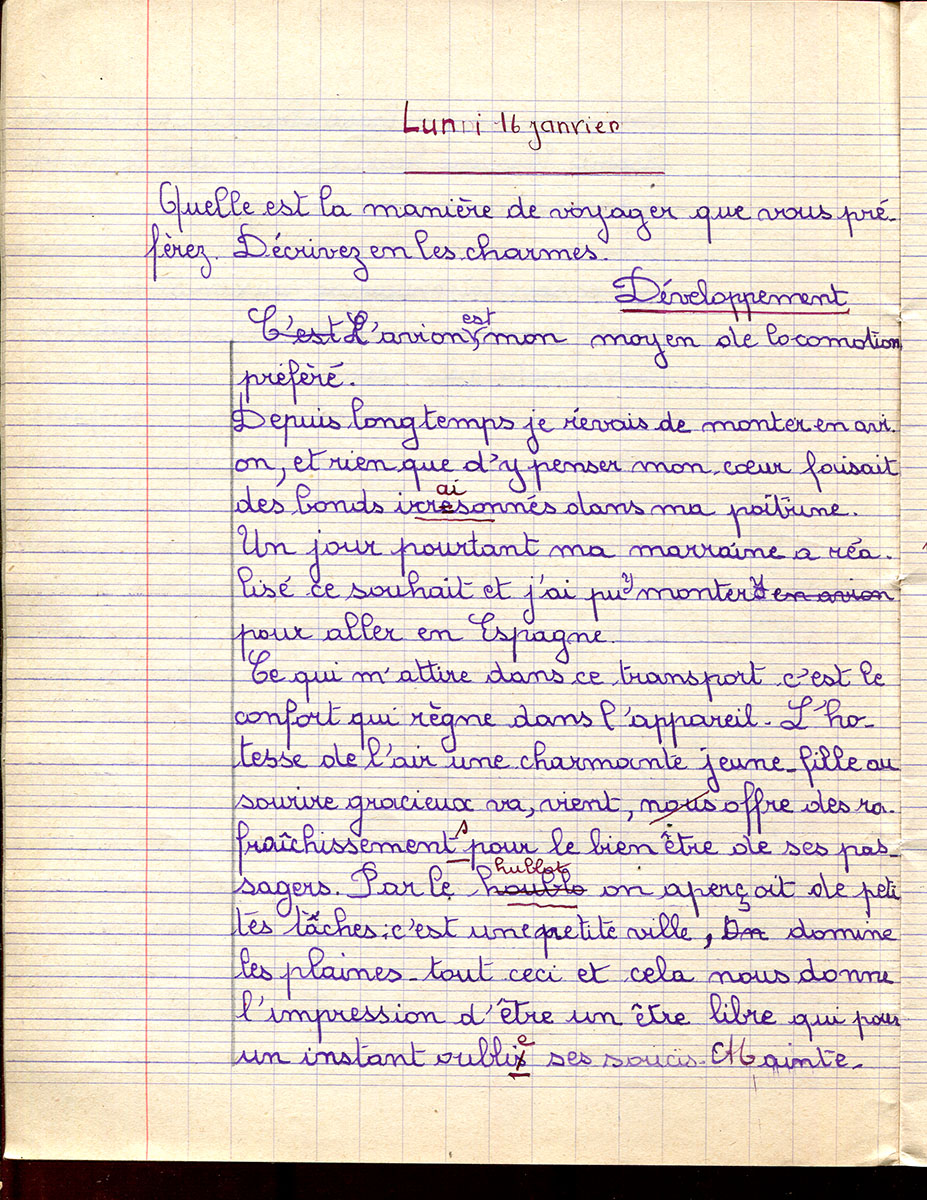 Lundi 16 janvier
Quelle est la manière de voyager que vous pré-
fèrez. Décrivez en les charmes.
Développement
C'est L'avion est mon moyen de locomotion
préfèré.
Depuis longtemps je rêvais de monter en avi-
on, et rien que d'y penser mon cœur faisait
des bonds irraisonnés dans ma poitrine.
Un jour pourtant ma marraine a réa-
lisé ce souhait et j'ai pu y monter en avion
pour aller en Espagne.
Ce qui m'attire dans ce transport c'est le
confort qui règne dans l'appareil. L'ho-
tesse de l'air une charmante jeune-fille au
sourire gracieux va, vient, nous offre des ra-
fraîchissements pour le bien être de ses pas-
sagers. Par le houblo hublot on aperçoit de peti
tes tâches : c'est une petite ville, On domine
les plaines tout ceci et cela nous donne
l'impression d'être un être libre qui pour
un instant oublie ses soucis. Mainte-